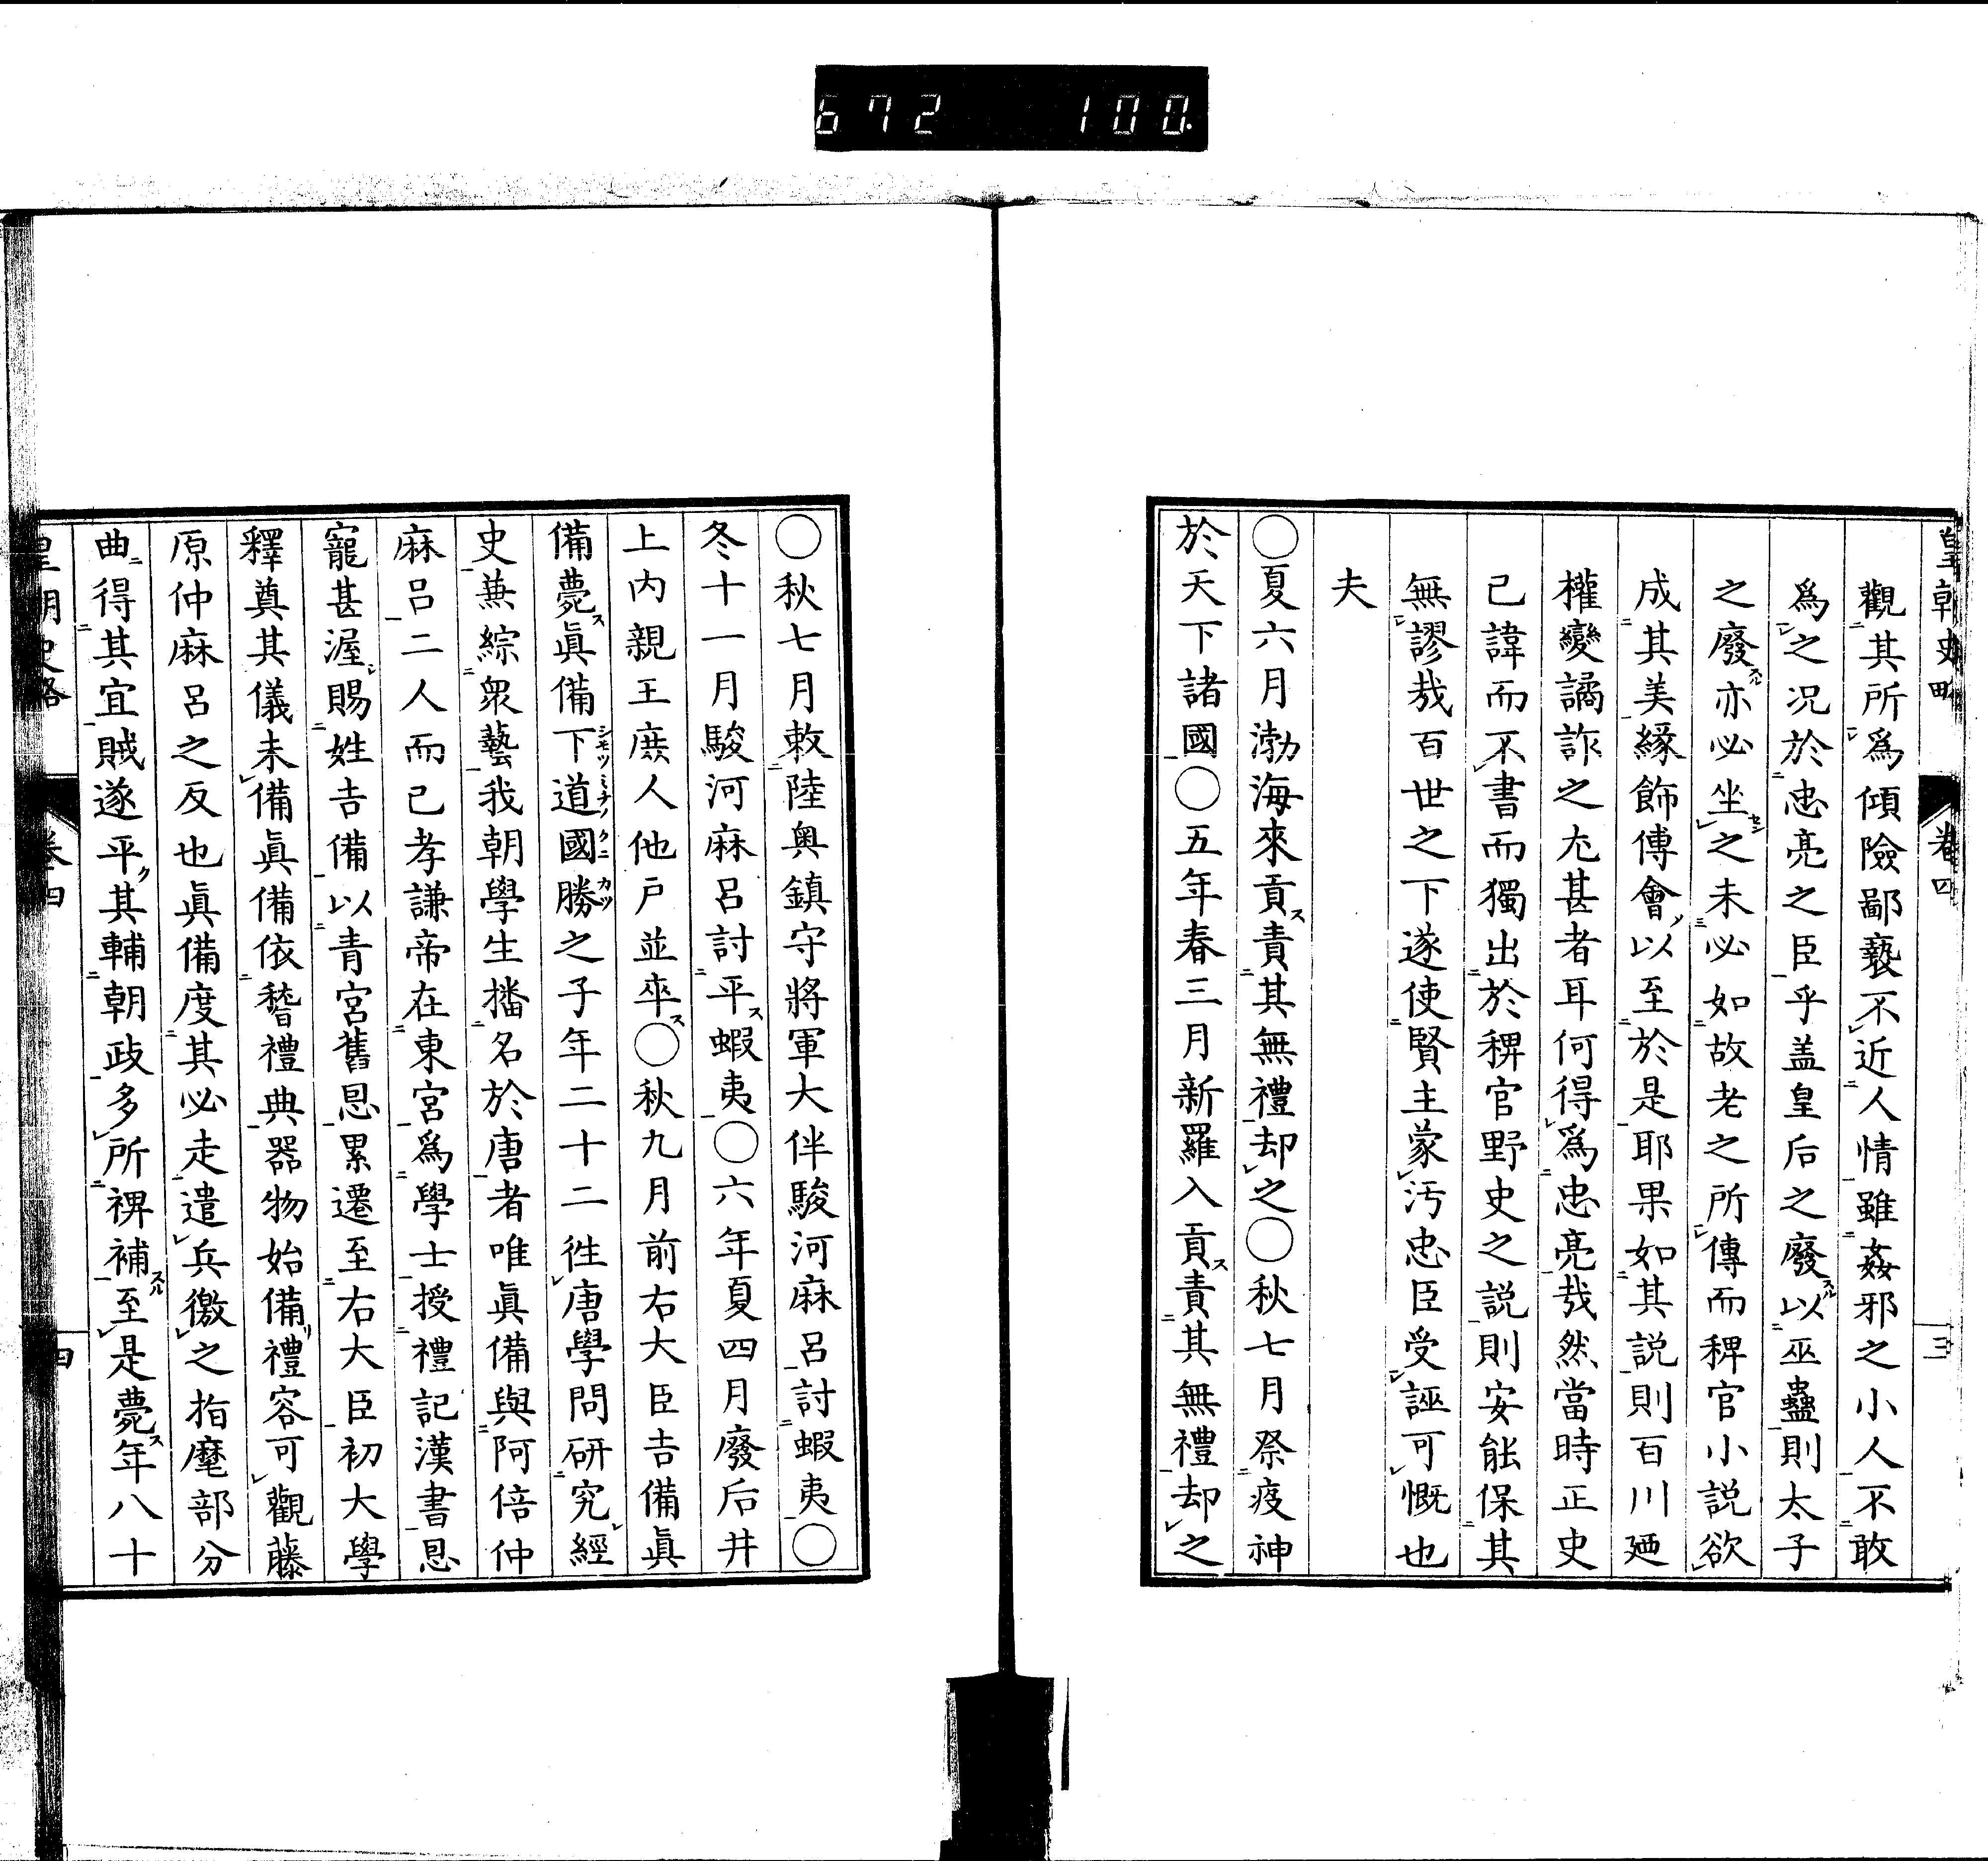 672 100.
皇朝史略 卷四 三
觀其所爲傾險鄙褻不近人情雖姦邪之小人不敢
爲之況於忠亮之臣乎盖皇后之廢以巫蠱則太子
之廢亦必坐之未必如故老之所傳而稗官小説欲
成其美緣飾傅會以至於是耶果如其説則百川廼
權變譎詐之尤甚者耳何得爲忠亮哉然當時正史
已諱而不書而獨出於稗官野史之説則安能保其
無謬哉百世之下遂使賢主蒙汚忠臣受誣可慨也
夫
○夏六月渤海來貢責其無禮却之○秋七月祭疫神
於天下諸國○五年春三月新羅入貢責其無禮却之
○秋七月敕陸奧鎮守將軍大伴駿河麻呂討蝦夷○
冬十一月駿河麻呂討平蝦夷○六年夏四月廢后井
上内親王庶人他戸並卒○秋九月前右大臣吉備眞
備薨眞備下道國勝之子年二十二徃唐學問研究經
史兼綜衆藝我朝學生播名於唐者唯眞備與阿倍仲
麻呂二人而已孝謙帝在東宮爲學士授禮記漢書恩
寵甚渥賜姓吉備以青宮舊恩累遷至右大臣初大學
釋奠其儀未備眞備依稽禮典器物始備禮容可觀藤
原仲麻呂之反也眞備度其必走遣兵徼之指麾部分
曲得其宜賊遂平其輔朝政多所裨補至是薨年八十
皇朝史略 卷四 四